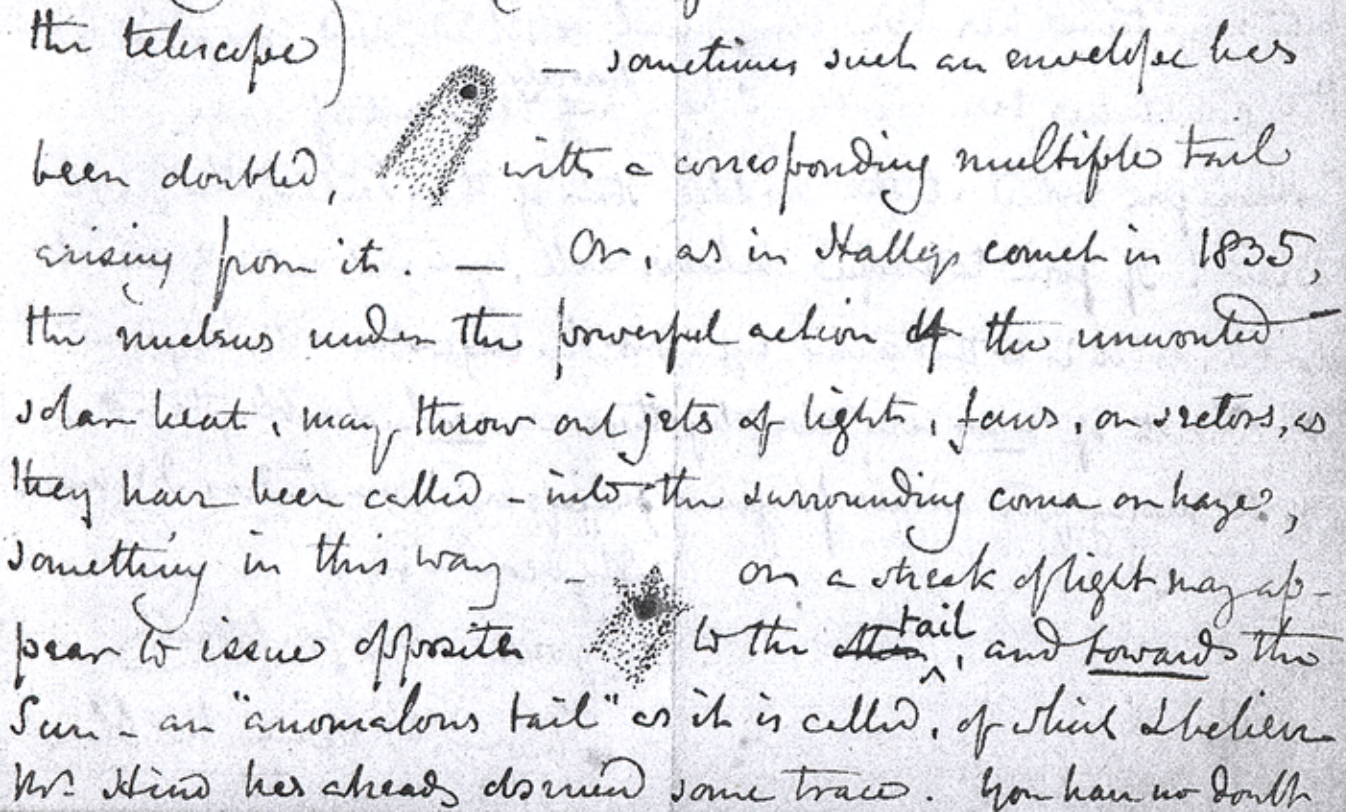 the telescope) — sometimes such an envelope has
been doubled, with a corresponding multiple tail
arising from it. — Or, as in Halleys comet in 1835,
the nucleus under the powerful action of the unwonted
solar heat, may throw out jets of light, fans, or sectors, as
they have been called – into the surrounding coma or haze,
something in this way – or a streak of light may ap-
pear to issue opposite to the tail, and towards the
Sun – an "anomalous tail" as it is called, of which I believe
Mr. Hind has already discerned some trace. You have no doubt